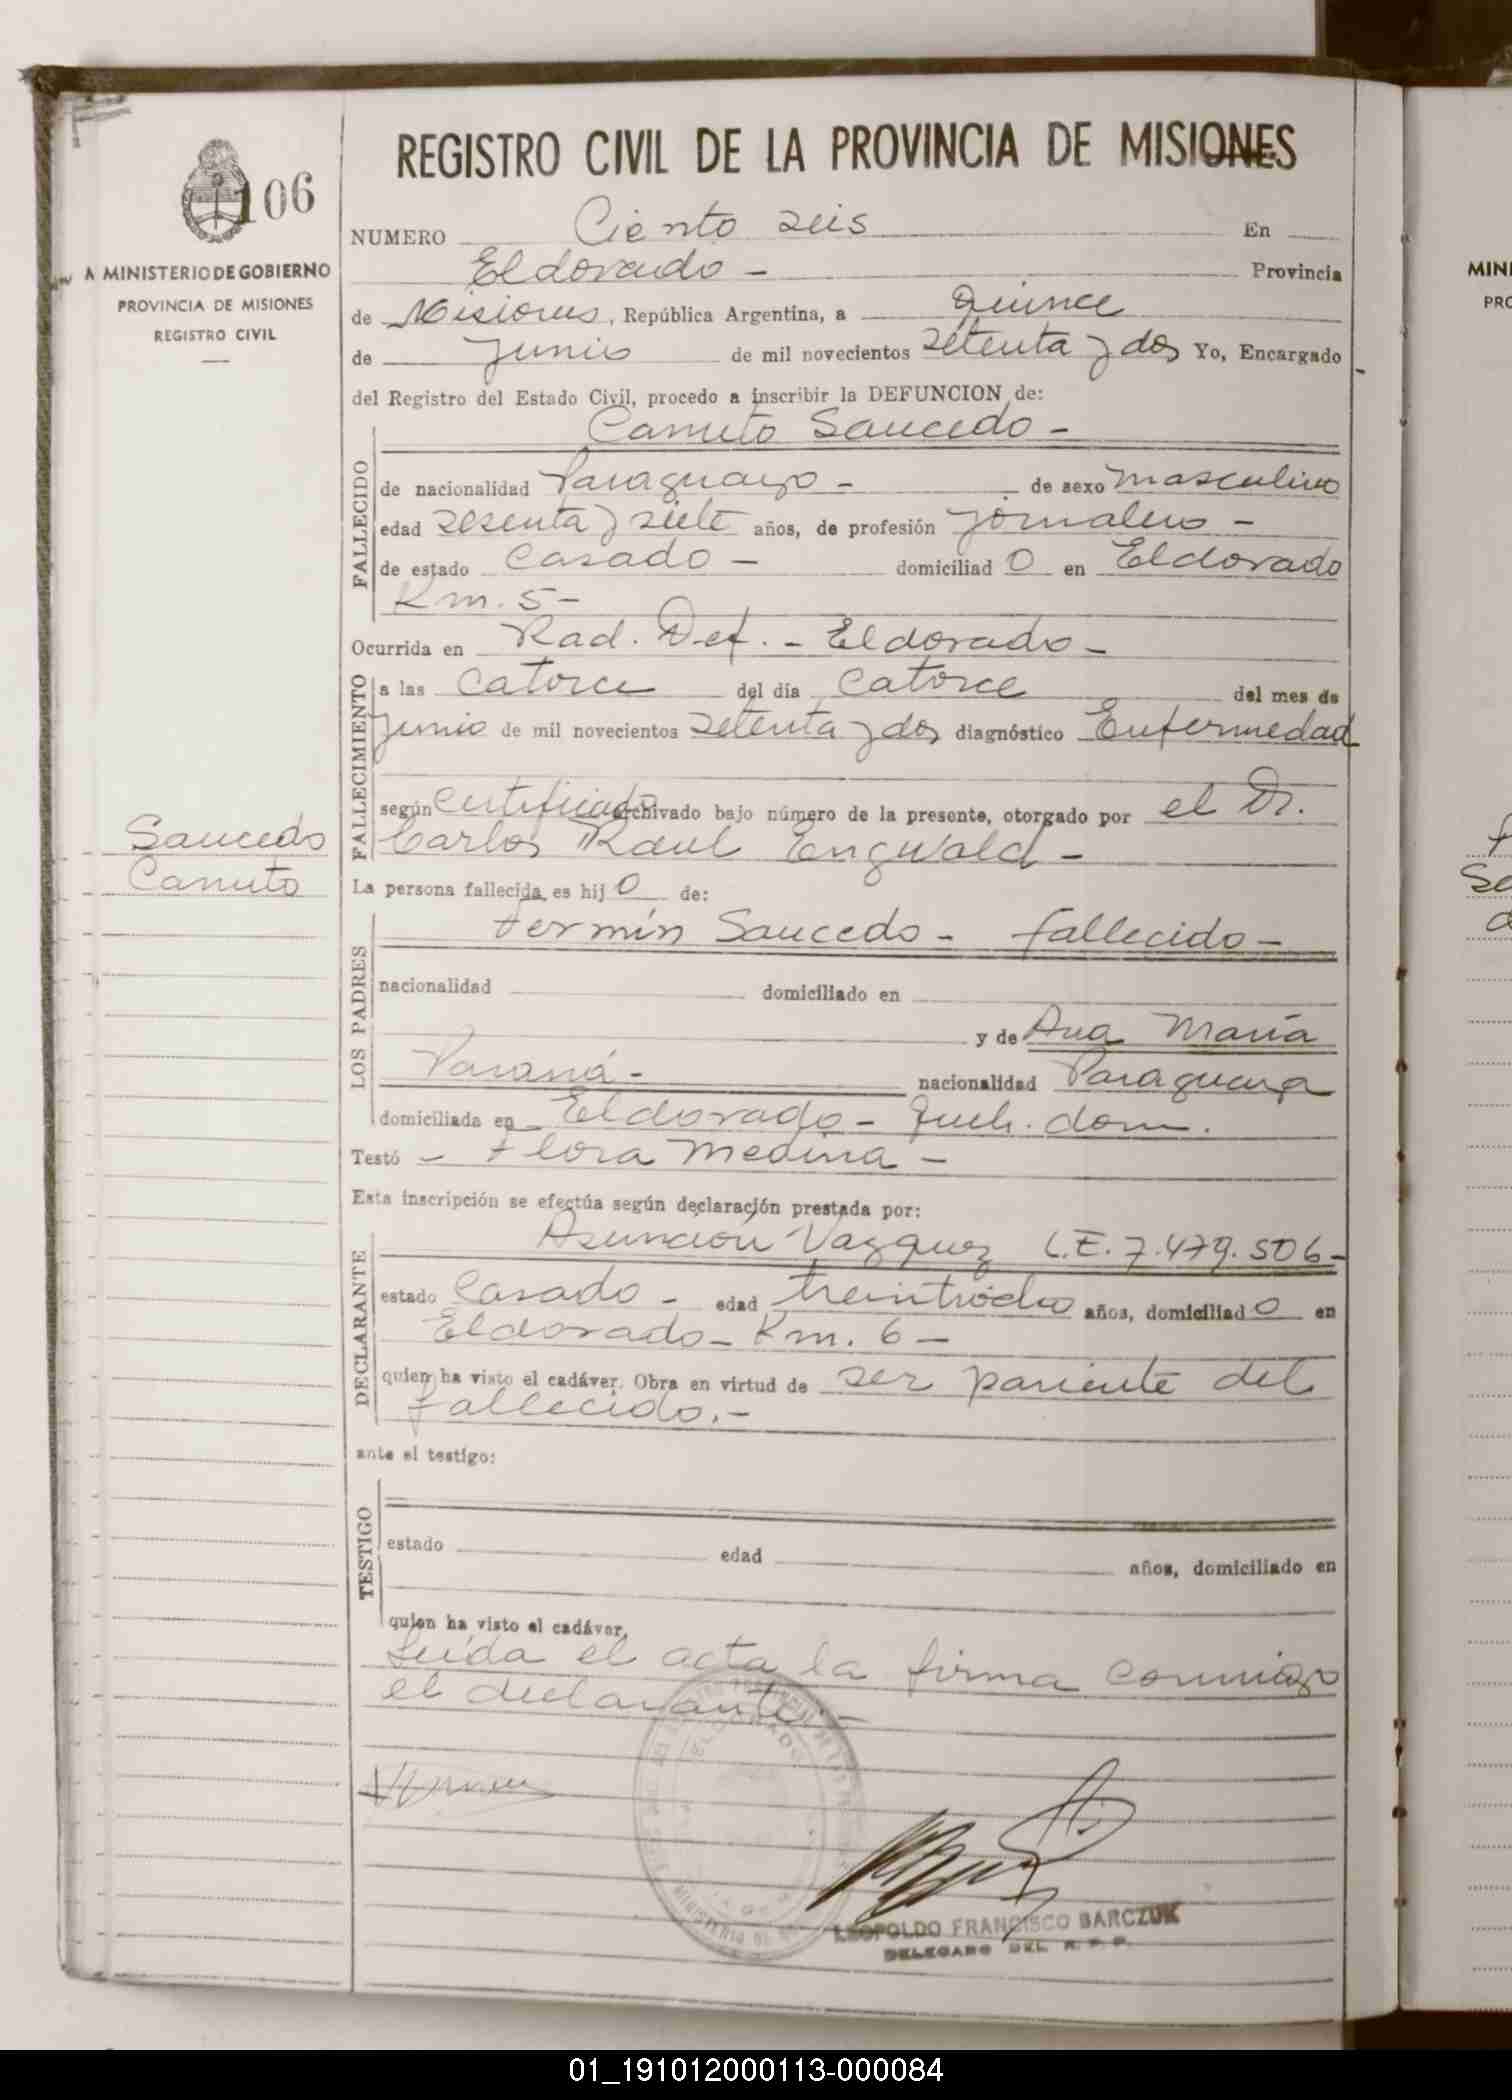 REGISTRO CIVIL DE LA PROVINCIA DE MISIONES
106
A MINISTERIO DE GOBIERNO
PROVINCIA DE MISIONES
REGISTRO CIVIL
NUMERO Ciento seis En
Eldorado - Provincia
de Misiones, República Argentina, a Quince
de Junio de mil novecientos setenta y dos Yo, Encargado
del Registro del Estado Civil, procedo a inscribir la DEFUNCION de:
Canuto Saucedo -
FALLECIDO
de nacionalidad Paraguayo - de sexo masculino
edad sesenta y siete años, de profesión jornalero -
de estado Casado - domiciliad o en Eldorado
Km. 5 -
Ocurrida en Rad. Def. - Eldorado -
FALLECIMIENTO
a las Catorce del día Catorce del mes de
Junio de mil novecientos setenta y dos diagnóstico Enfermedad
según certificado archivado bajo número de la presente, otorgado por el Dr.
Carlos Raul Engwald -
Saucedo
Canuto
La persona fallecida es hij o de:
LOS PADRES
Fermín Saucedo - fallecido -
nacionalidad domiciliado en
y de Ana María
Paraná - nacionalidad Paraguaya
domiciliada en Eldorado - Queh. dom.
Testó - Flora Medina -
Esta inscripción se efectúa según declaración prestada por:
DECLARANTE
Asunción Vazquez L.E. 7.479.506 -
estado Casado - edad treintiocho años, domiciliad o en
Eldorado - Km. 6 -
quien ha visto el cadáver. Obra en virtud de ser pariente del
fallecido. -
ante el testigo:
TESTIGO
estado edad años, domiciliado en
quien ha visto el cadáver,
Leída el acta la firma conmigo
el declarante. -
ELDORADO
MINISTERIO DE
LEOPOLDO FRANCISCO BARCZUK
DELEGADO DEL R. P. P.
MINI
PRO
01_191012000113-000084